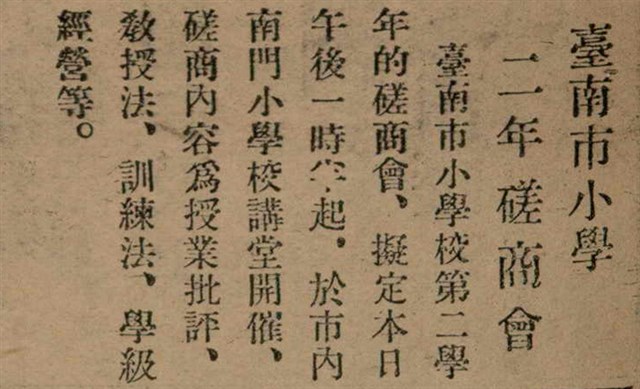 臺南市小學
二一年磋商會
臺南市小學校第二學
年的磋商會、擬定本日
午後一時半起、於市內
南門小學校講堂開催、
磋商內容爲授業批評、
敎授法、訓練法、學級
經營等。